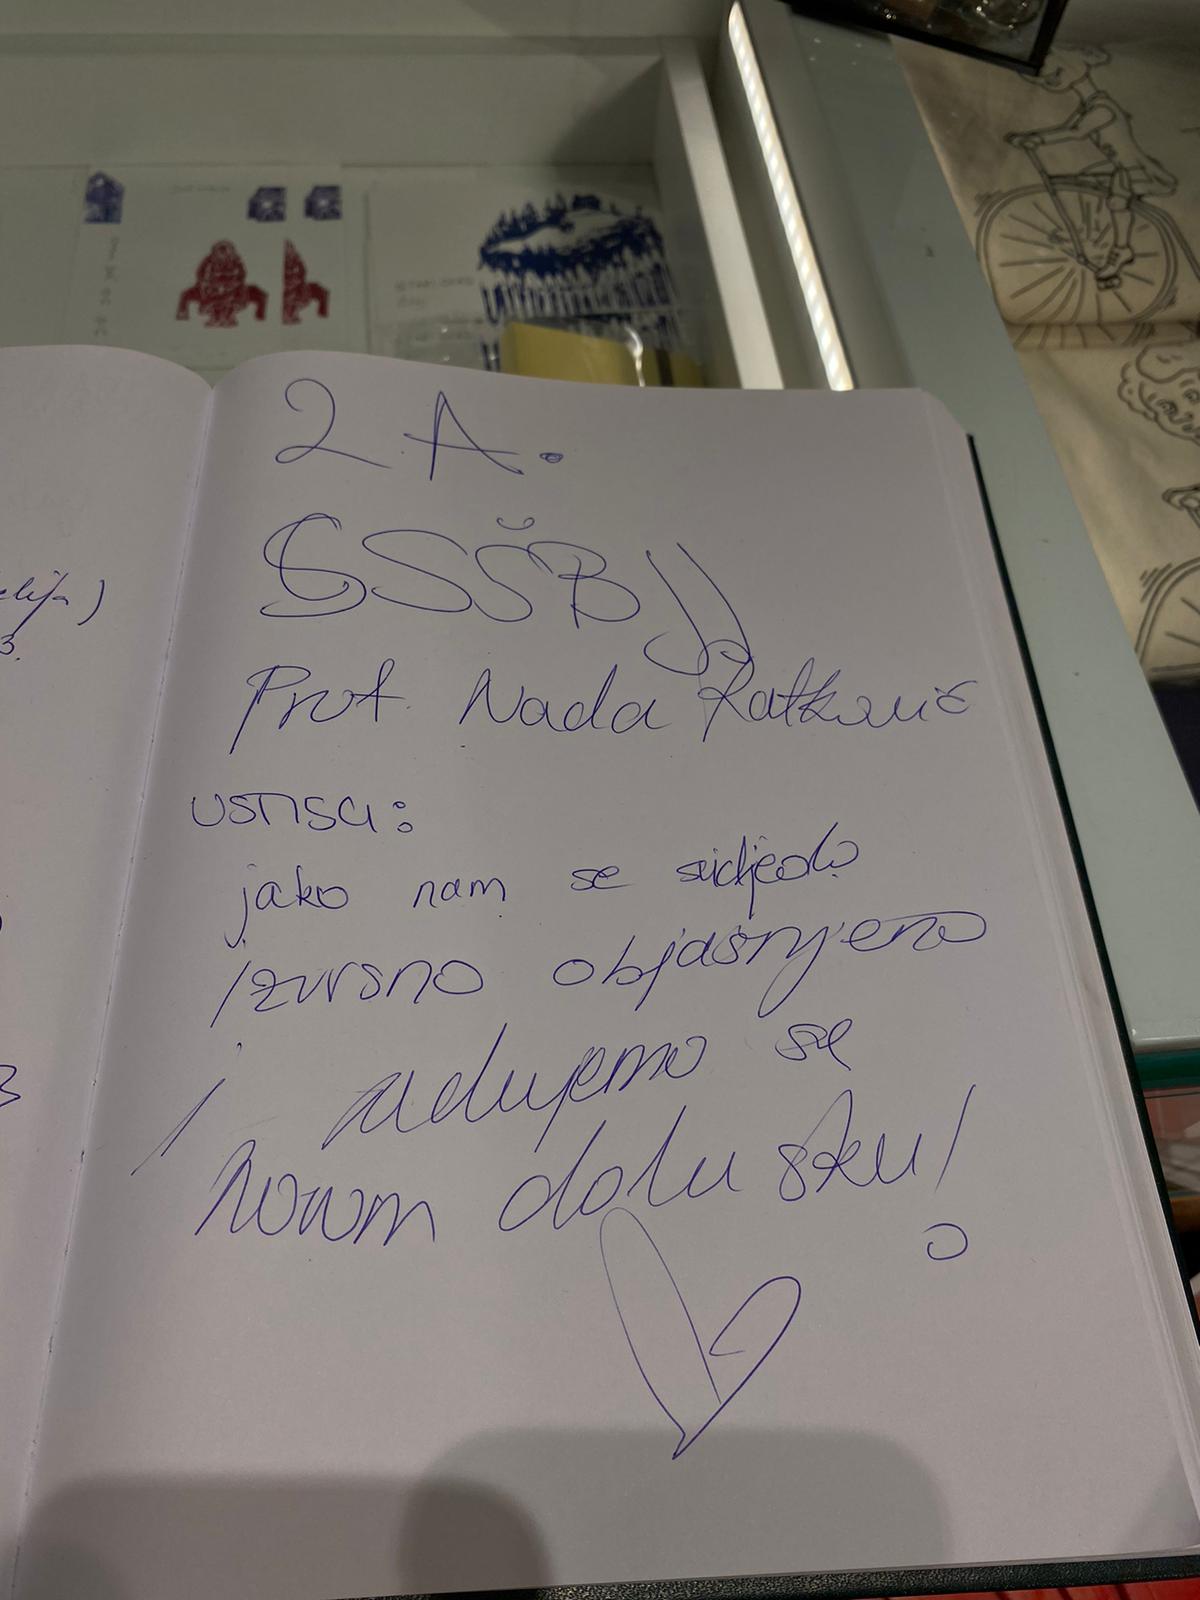 2. A.
SSŠBJJ
Prof. Nada Ratković
USTISCI:
jako nam se svidjelo
izvrsno objašnjeno
i radujemo se
novom dolasku!
elija)
3.
3